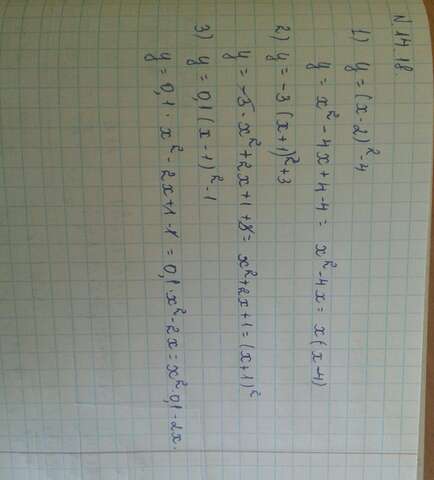 N 14.18.
1) y = (x - 2)² - 4
y = x² - 4x + 4 - 4 = x² - 4x = x(x - 4)
2) y = -3(x+1)² + 3
y = -3 · x² + 2x + 1 + 3 = x² + 2x + 1 = (x+1)²
3) y = 0,1(x - 1)² - 1
y = 0,1 · x² - 2x + 1 - 1 = 0,1 · x² - 2x = x² · 0,1 - 2x.